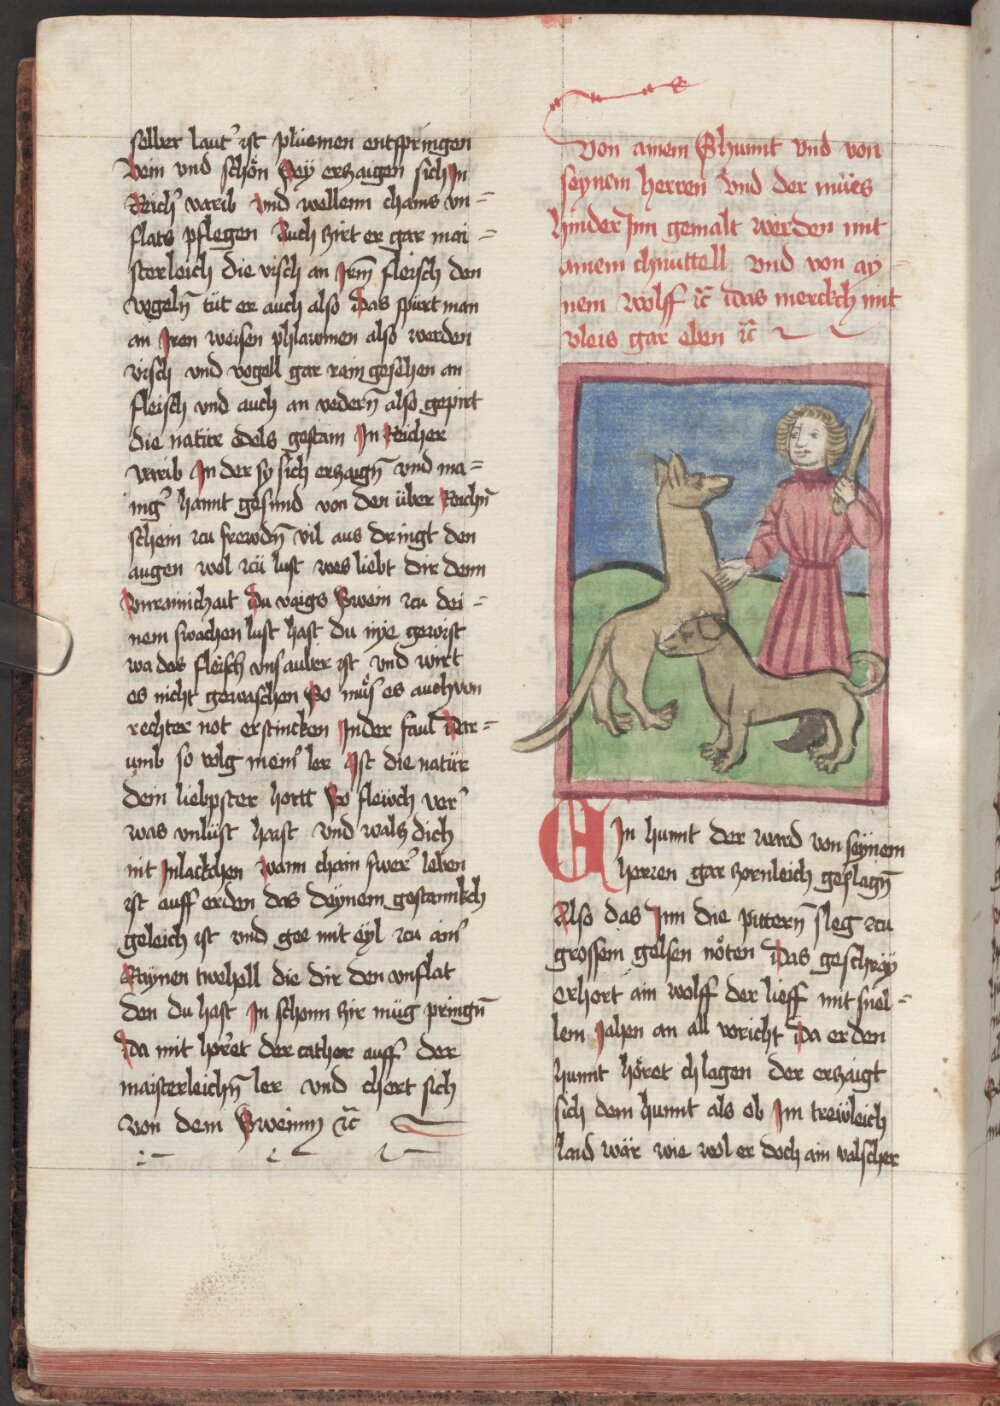 selber laut' ist pluemen entspringen
Vein vnd schön Sey erzaigen sich In
Reich' varib vnd wellenn chains vn=
flats pflegen Auch hirt er gar mai=
sterleich die visch an Irm fleisch den
vogeln tüt er auch also Das spürt man
an Iren weisen phlawmen also werden
visch vnd vogell gar rain gesehen an
fleisch vnd auch an vedern also gepirt
die natúre edels gestain In Reicher
varib In der sy sich erzaign vnd ma=
nig' hannt gesund von den über Reichn
schein zu frewdn vil aus dringt den
augen wol zü lust wes liebt dir denn
Vnrainichait Du vaigs Swein zu dei=
nem swachen lust hast du nye gewist
wa das fleisch vnsauber ist vnd wirt
es nicht gewaschen So müs es auch von
rechter not erstincken In der faul Dar=
umb so volg meins ler Ist die natür
dein liebster hortt So fleuch ver'
was vnlüst haist vnd waltz dich
nit In lackchen wann chain swer' leben
ist auff erden das deynem gestannkch
geleich ist vnd gee mit eyl zu ains
Raynen twehell die dir den vnflat
den du hast In schonn zir müg pringn
Da mit horet der cather auff der
maisterleichn ler vnd chert sich
von dem Sweinn etc̃
Von ainem Shunnt vnd von
seynem herren vnd der mües
hinder Im gemalt werden mit
ainem chnuttell vnd von ay=
nem wolff etc̃ das merckch mit
vleis gar eben etc̃
EIn hunnt der ward von seynem
herren gar zornleich geslagn
Also das Im die pittern sleg zu
grossem gelsen nöten Das geschray
erhort ain wolff der lieff mit snel=
lem Iahen an all vericht Da er den
hunnt höret chlagen der erzaigt
sich dem hunnt als ob Im trewleich
laid wär wie wol er doch ain valscher